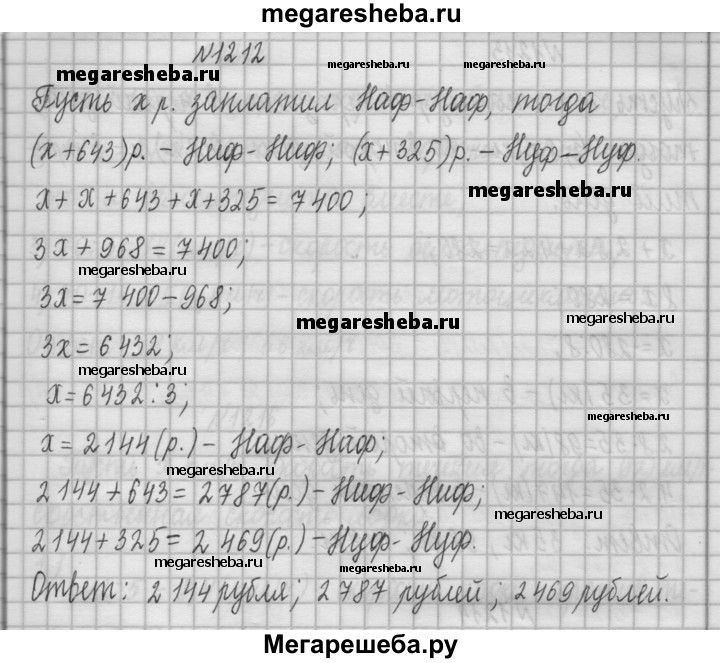 megaresheba.ru
N1212
megaresheba.ru
megaresheba.ru
megaresheba.ru
Пусть x р. заплатил Наф-Наф, тогда
(x+643)р. - Ниф-Ниф; (x+325)р. - Нуф-Нуф.
megaresheba.ru
x+x+643+x+325=7400;
3x+968=7400;
megaresheba.ru
3x=7 400-968;
megaresheba.ru
megaresheba.ru
3x=6432;
x=6432:3;
megaresheba.ru
x=2144(р.) - Наф-Наф;
megaresheba.ru
2144+643=2787(р.)-Ниф-Ниф;
megaresheba.ru
2144+325=2 469(р.)-Нуф-Нуф.
megaresheba.ru
Ответ: 2144рубля; 2787 рублей; 2469рублей.
Мегарешеба.ру